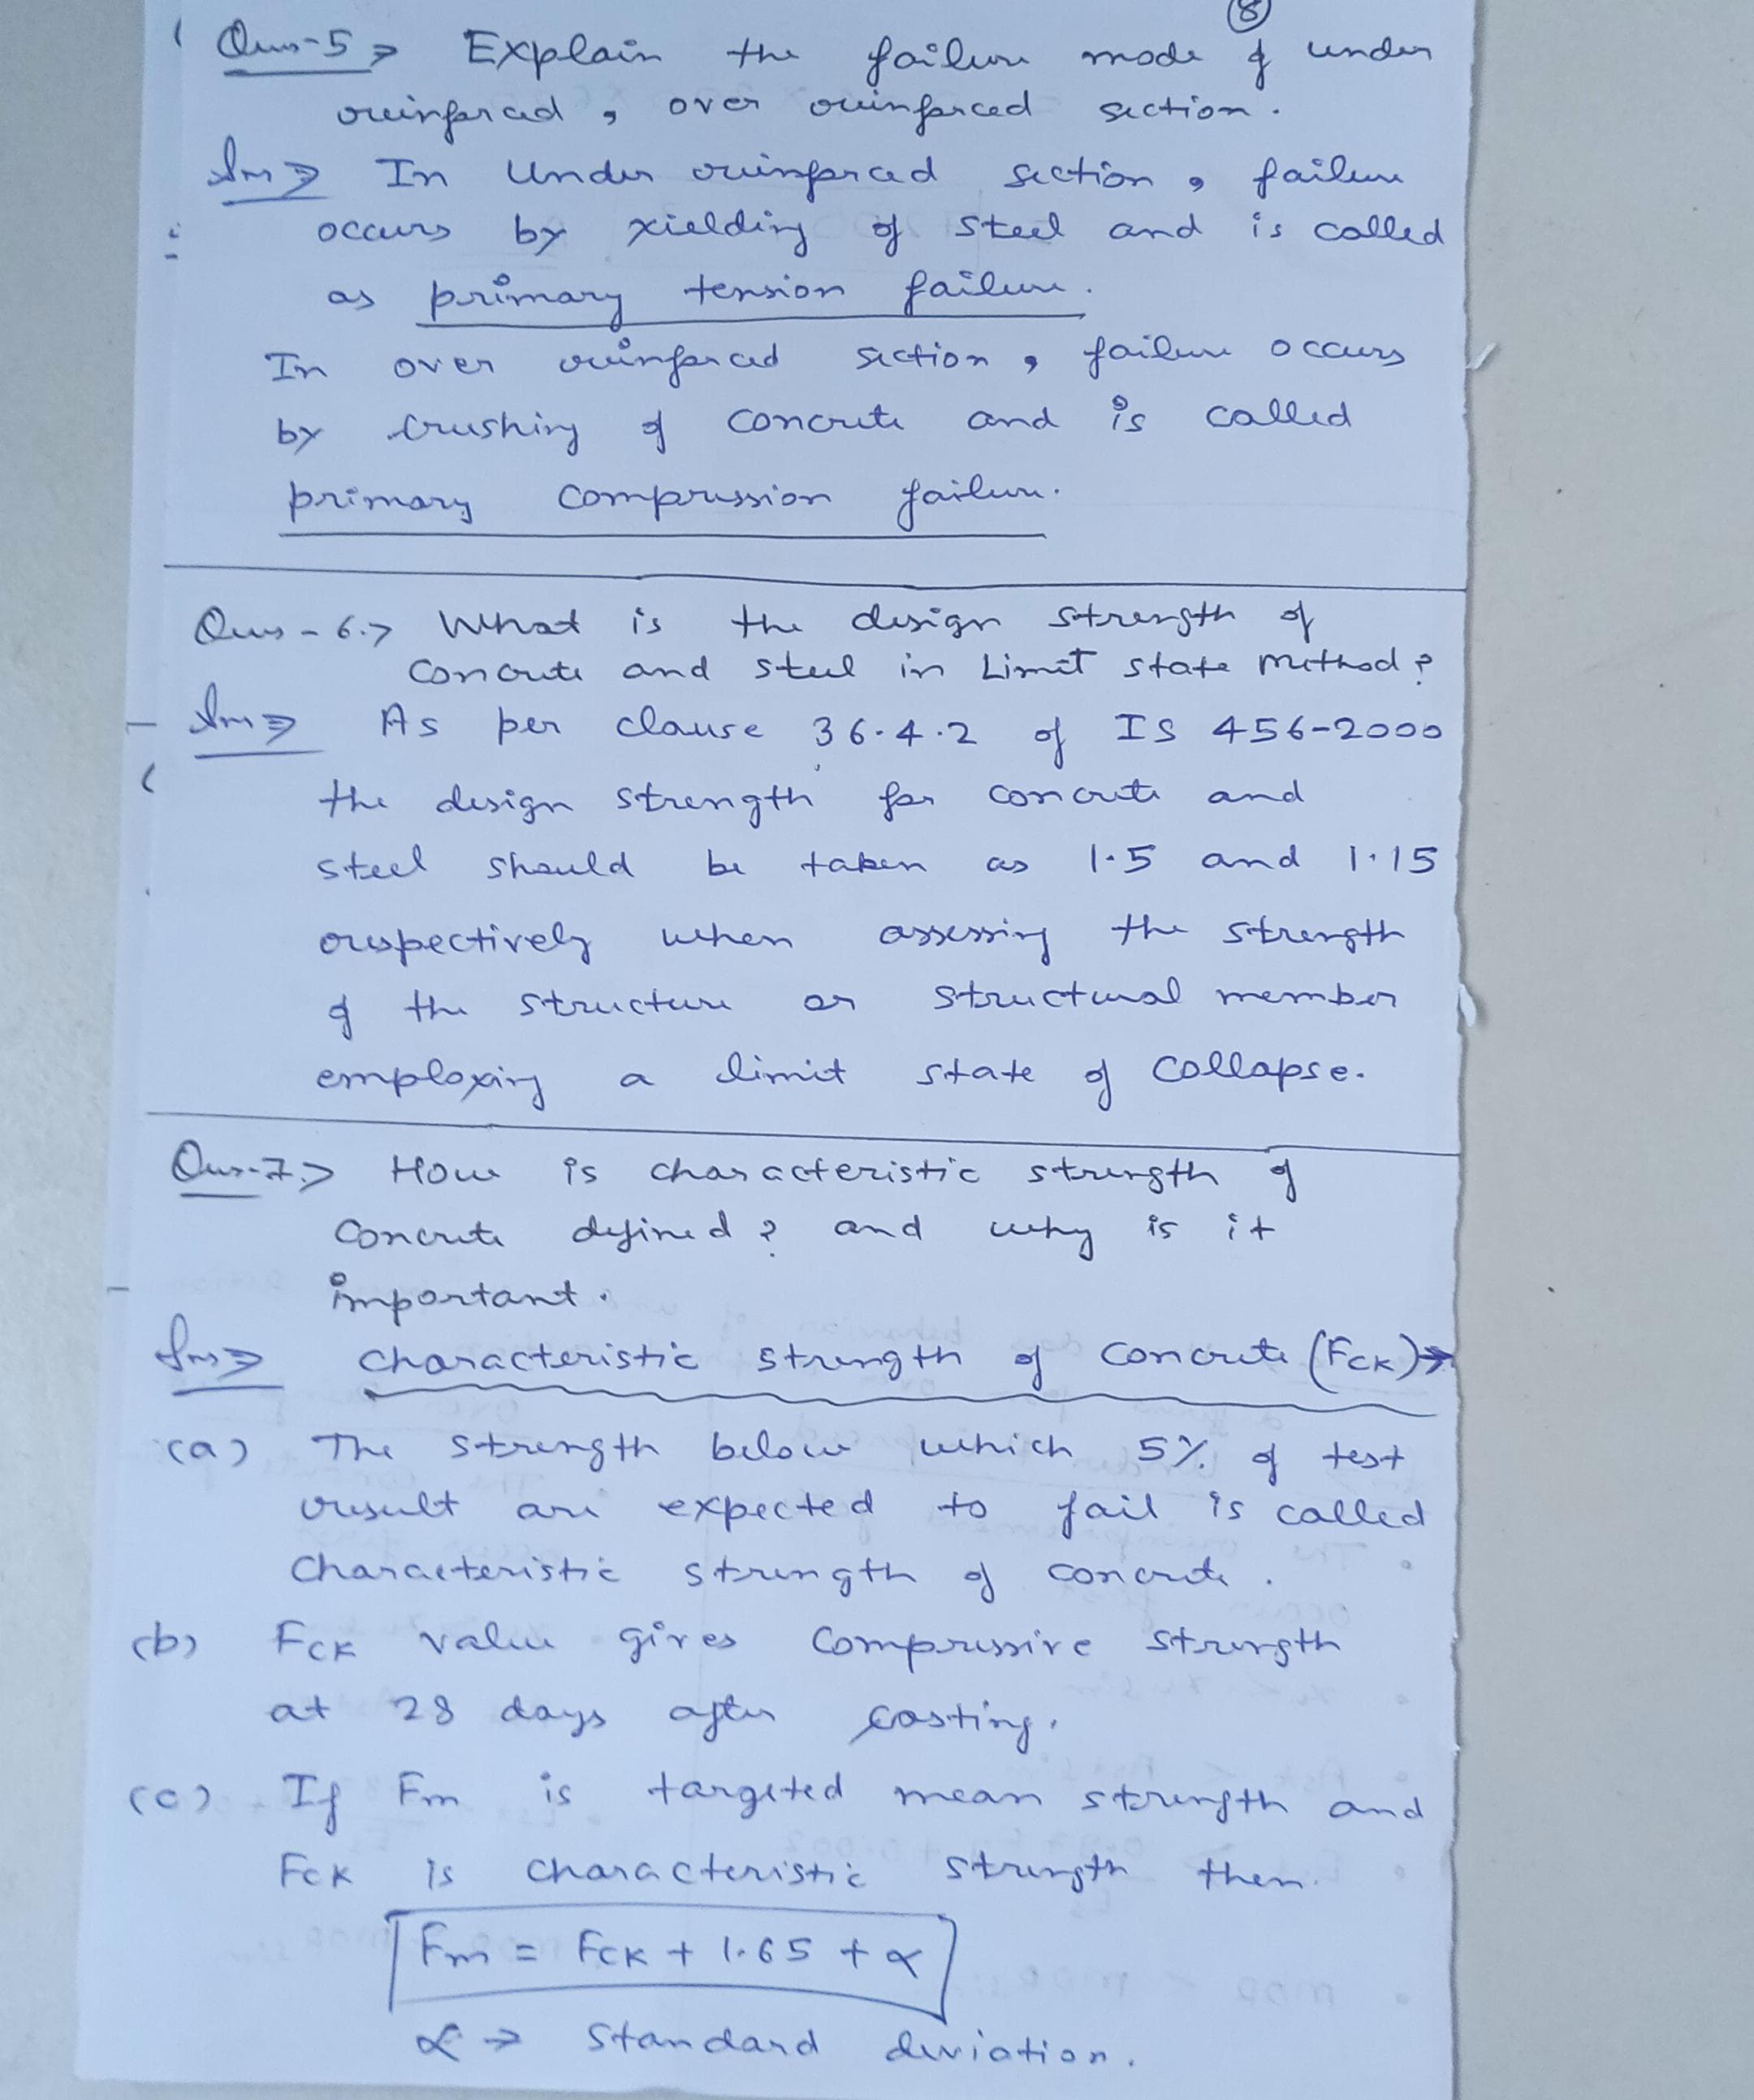 8
Ques-5 → Explain the failure mode of under
reinforced, over reinforced section.
Ans ⇒ In Under reinforced section, failure
occurs by yielding of steel and is called
as primary tension failure.
In over reinforced section, failure occurs
by crushing of concrete and is called
primary compression failure.
Ques-6.→ What is the design strength of
concrete and steel in Limit state method?
Ans ⇒ As per clause 36.4.2 of IS 456-2000
the design strength for concrete and
steel should be taken as 1.5 and 1.15
respectively when assessing the strength
of the structure or structural member
employing a limit state of collapse.
Ques-7.→ How is characteristic strength of
concrete defined? and why is it
important.
Ans ⇒ Characteristic strength of concrete (Fck) →
(a) The strength below which 5% of test
result are expected to fail is called
characteristic strength of concrete.
(b) Fck value gives compressive strength
at 28 days after casting.
(c) If Fm is targeted mean strength and
Fck is characteristic strength then.
Fm = Fck + 1.65 + α
α → Standard deviation.